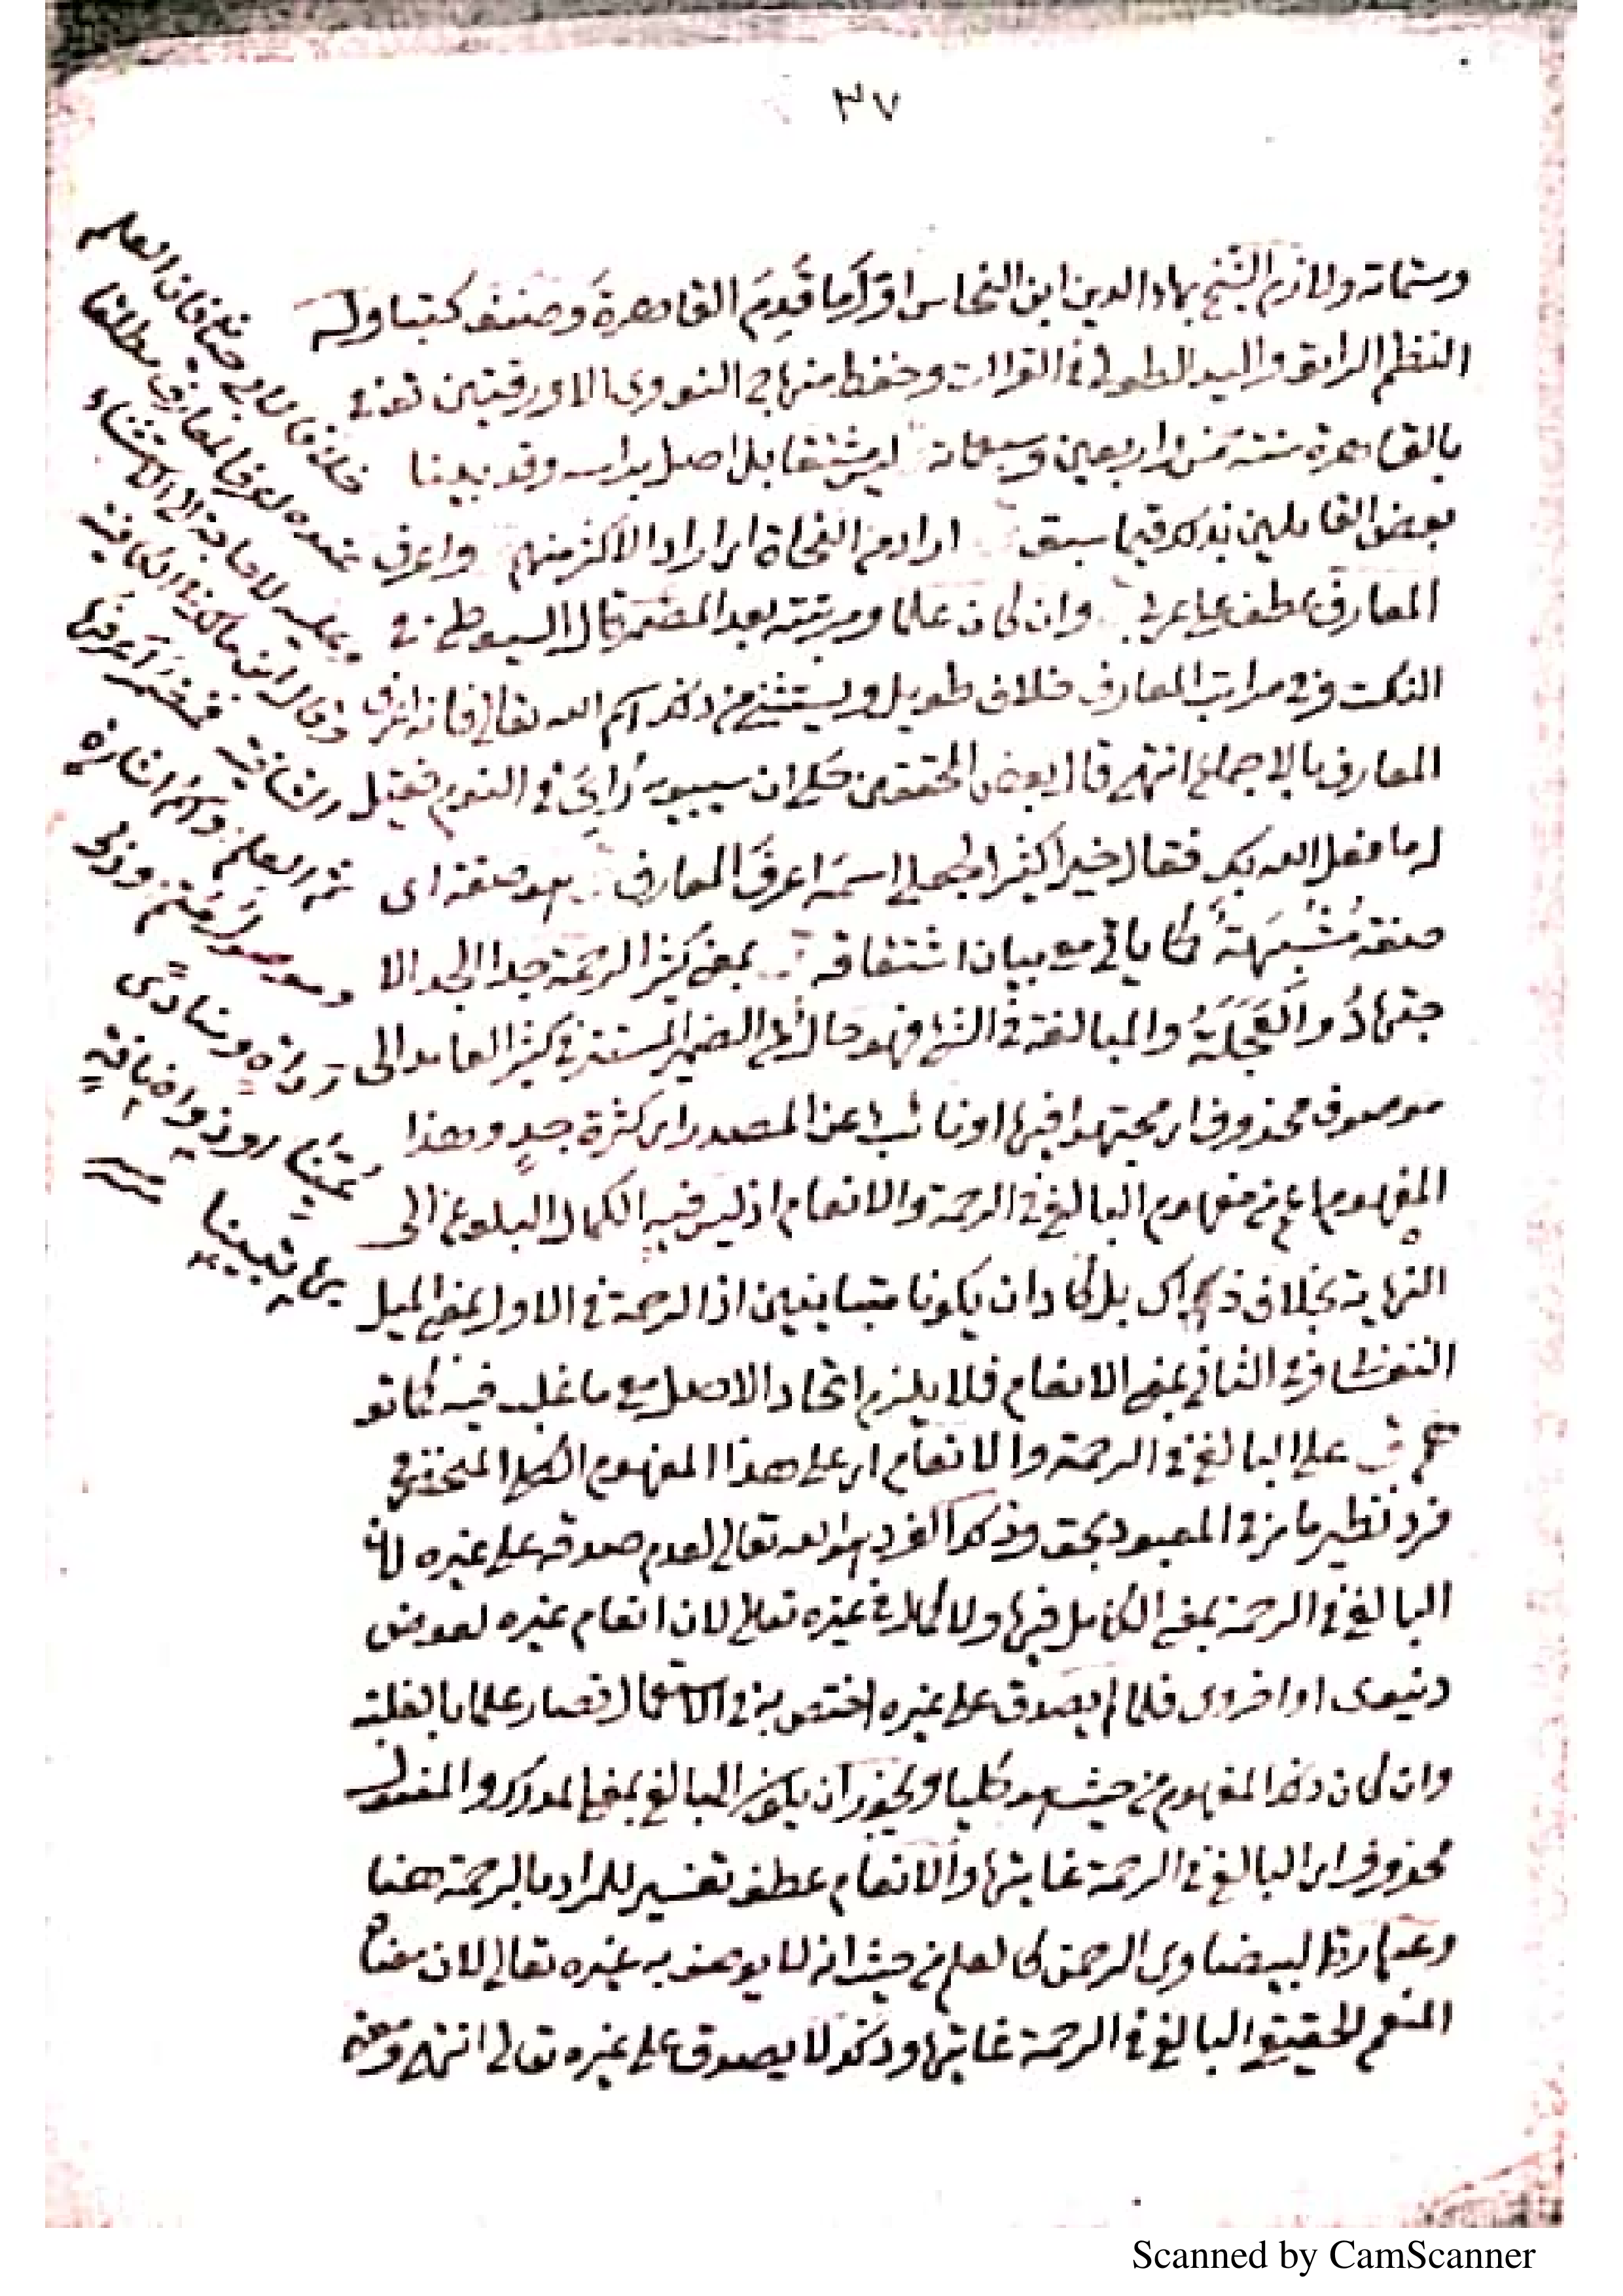 ٣٧
وستمائة ولازم الشيخ بهاء الدين ابن النحاس اوّلَ ما قَدِمَ القاهرةَ وصنّف كتبا وله
النظم الرائق واليد الطولى في القراآت وحفظ منهاج النووى الا ورقتين توفي
بالقاهرة سنة خمس واربعين وسبعمائة ليس مشتقا بل اصل براسه وقد بينا
بعض القائلين بذلك فيما سبق اراد من النحاة اى اراد الاكثر منهم واعرف
المعارف عطف على عربي وان كان علما ومرتبته بعد المضمر قال السيوطي في
النكت وفي مراتب المعارف خلاف طويل ويستثنى من ذلك اسم الله تعالى فانه اعرف
المعارف بالاجماع انتهى قال بعض المحققين حكى ان سيبويه رُاِيَ في النوم فقيل
له ما فعل الله بك فقال خيرا كثيرا لجعلى اسمه اعرف المعارف هو صفة اى
صفة مُشَبَّهةٌ كما ياتي مع بيان اشتقاقه بمعنى كثير الرحمة جدا الجد الا
جتهادُ والعَجَلَةُ والمبالغة في الشئ فهو حال من الضمير المستتر في كثير العائد الى
موصوف محذوف اى مجتهدا فيها او نائب عن المصدر اى كثرة جدٍ وهذا
المفهوم اعم من مفهوم البالغ في الرحمة والانعام اذ ليس فيه الكمال البلوغ الى
النهاية بخلاف ذاك بل كادا ان يكونا متباينين اذ الرحمة في الاول بمعنى الميل
النفساني وفي الثاني بمعنى الانعام فلا يلزم اتحاد الاصل مع ما غلب فيه كما تو
هم على البالغ في الرحمة والانعام اى على هذا المفهوم الكلي المنحصر في
فرد نظير ما مر في المعبود بحق وذلك الفرد هو الله تعالى لعدم صدقه على غيره لان
البالغ في الرحمة بمعنى الكامل فيها ولا كمال في غيره تعالى لان انعام غيره لعوض
دنيوى او اخروى فلما لم يصدق على غيره اختص به في الاستعمال فصار علما بالغلبة
وان كان ذلك المفهوم من حيث هو كليا ويجوز ان يكون البالغ بمعنى المدرك والمفعول
محذوف اى البالغ في الرحمة غايتها والانعام عطف تفسير للمراد بالرحمة هنا
وعبارة البيضاوى الرحمن كالعلم من حيث انه لا يوصف به غيره تعالى لان معناه
المنعم الحقيقي البالغ في الرحمة غايتها وذلك لا يصدق على غيره تعالى انتهى ومعنى
خلافا لابي حيان فان العلم
عنده اعرف المعارف مطلقا
وعليه لا حاجة الى الاستثناء
وقال ابن مالك في الكافية
الشافية فمضمر اعرفها
ثم العلم واسم اشارة
وموصول متم وذو
اداة ومنادى
عُيِّنا او ذو اضافة
بها تبينا
Scanned by CamScanner